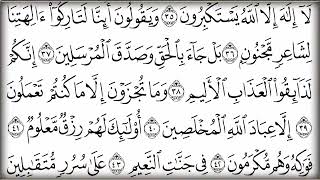 لَآ إِلَٰهَ إِلَّا ٱللَّهُ يَسْتَكْبِرُونَ ٣٥ وَيَقُولُونَ أَئِنَّا لَتَارِكُوٓا۟ ءَالِهَتِنَا
لِشَاعِرٍ مَّجْنُونٍۭ ٣٦ بَلْ جَآءَ بِٱلْحَقِّ وَصَدَّقَ ٱلْمُرْسَلِينَ ٣٧ إِنَّكُمْ
لَذَآئِقُوا۟ ٱلْعَذَابِ ٱلْأَلِيمِ ٣٨ وَمَا تُجْزَوْنَ إِلَّا مَا كُنتُمْ تَعْمَلُونَ
٣٩ إِلَّا عِبَادَ ٱللَّهِ ٱلْمُخْلَصِينَ ٤٠ أُو۟لَٰٓئِكَ لَهُمْ رِزْقٌ مَّعْلُومٌ ٤١
فَوَٰكِهُ وَهُم مُّكْرَمُونَ ٤٢ فِى جَنَّٰتِ ٱلنَّعِيمِ ٤٣ عَلَىٰ سُرُرٍ مُّتَقَٰبِلِينَ